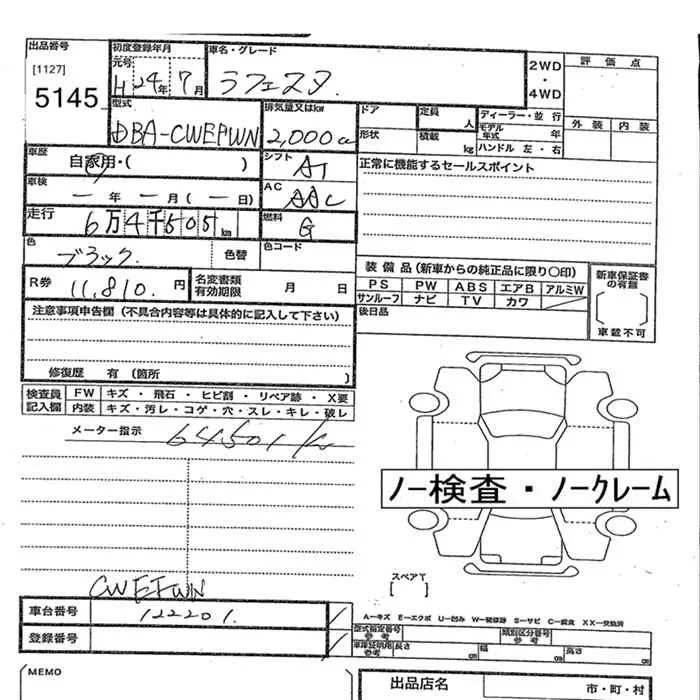 出品番号 初度登録年月 車名・グレード
[1127] 元号
5145 H 24年 7月 ラフェスタ.
2WD
・
4WD
評 価 点
外 装 内 装
型式 排気量又はkw ドア 定員 人 ディーラー・並 行
DBA-CWEFWN 2,000cc 形状 積載 kg モデル年式 年
ハンドル 左 ・ 右
車歴 自家用・( ) シフト AT
正常に機能するセールスポイント
車検 ー 年 ー 月 ( ー 日) AC AAC
走行 6万4千505 km 燃料 G
色 ブラック. 色替 色コード
R券 11,810. 円 名変書類有効期限 月 日
装 備 品 (新車からの純正品に限り〇印)
PS PW ABS エアB アルミW
サンルーフ ナビ TV カワ
後日品
新車保証書の有無
車載不可
注意事項申告欄 (不具合内容等は具体的に記入して下さい)
修復歴 有 (箇所 )
検査員記入欄 FW キズ ・ 飛石 ・ ヒビ割 ・ リペア跡 ・ X要
内装 キズ・汚レ・コゲ・穴・スレ・キレ・破レ
メーター指示 64501 km
ノー検査・ノークレーム
スペアT
[ ]
CWEFWN
車台番号 122201.
登録番号
A－キズ E－エクボ U－凹み W－補修跡 S－サビ C－腐食 XX－交換済
型式指定番号 参考 類別区分番号 参考
車庫証明用 参考 長さ cm 幅 cm 高さ cm
MEMO
出品店名
市・町・村